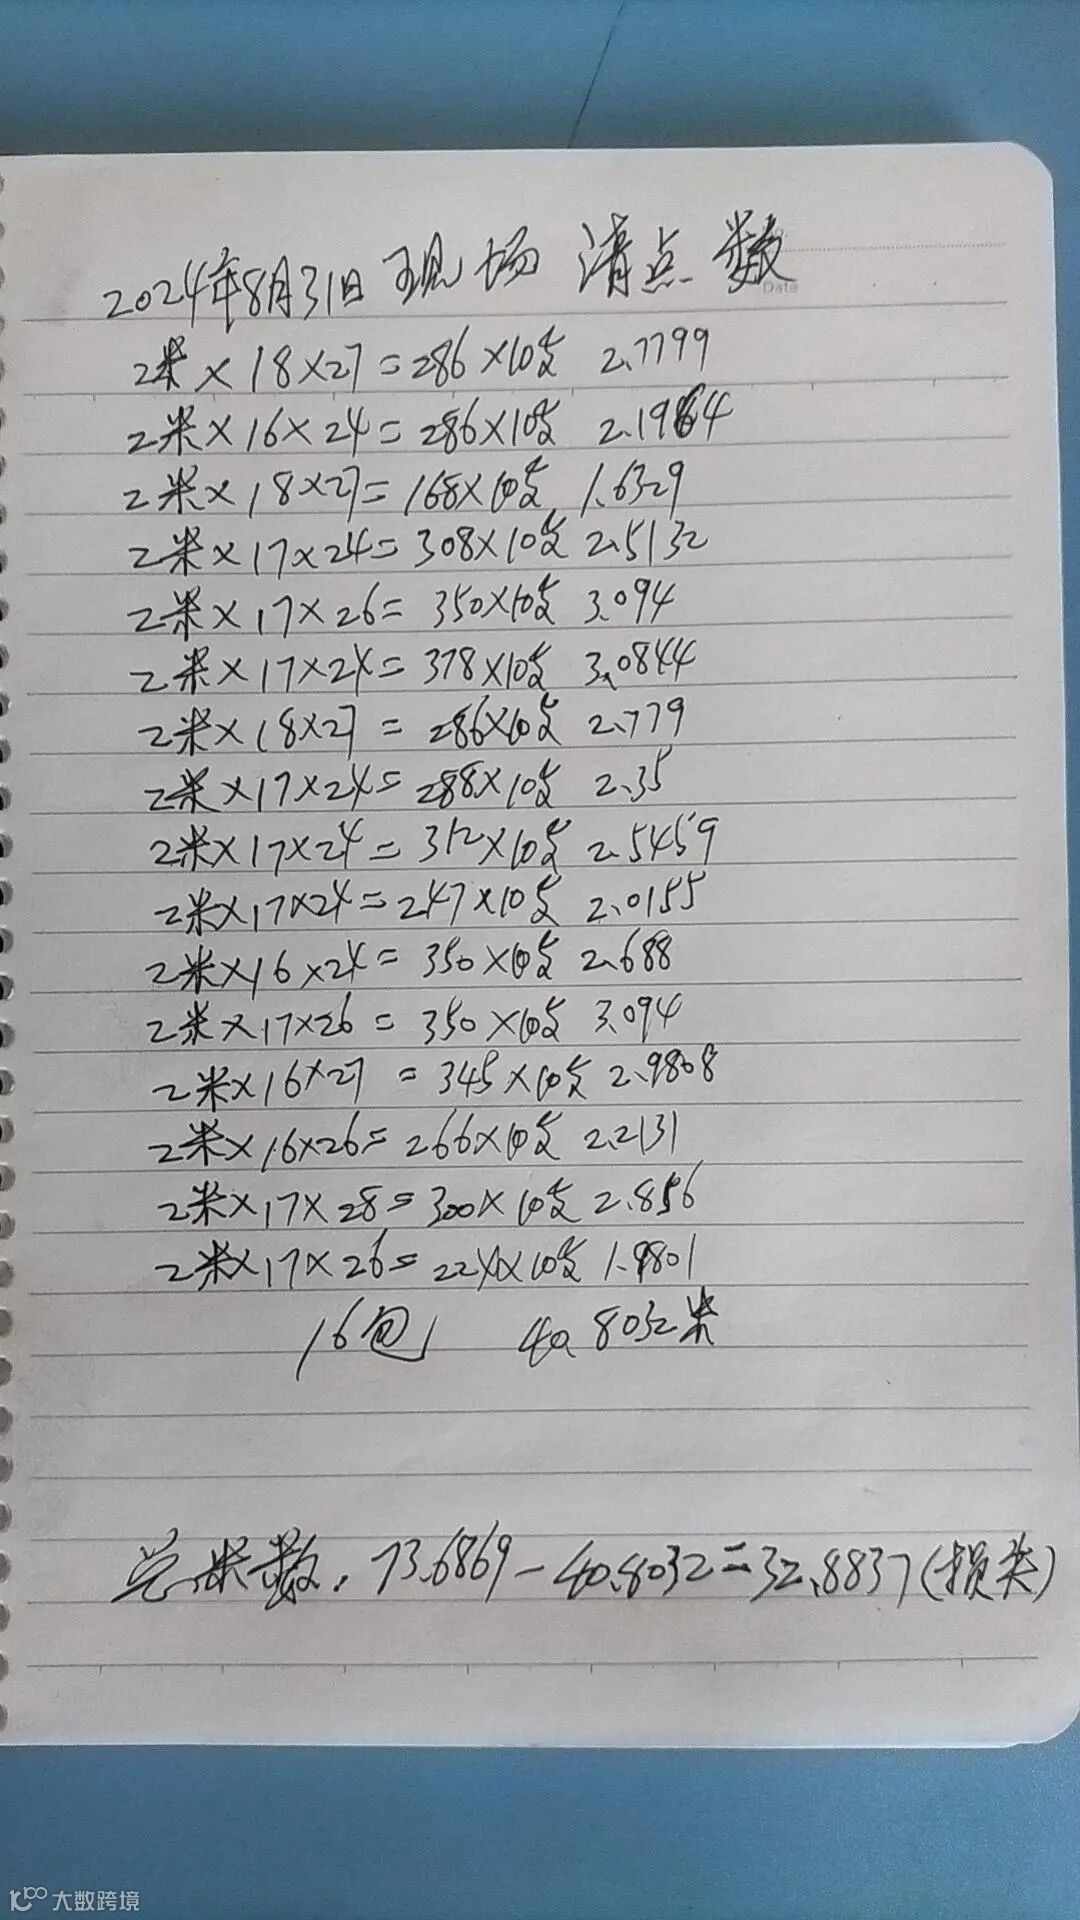 Date
2024年8月31日 现场 清点数
2米×18×27=286×10支 2.7799
2米×16×24=286×10支 2.1964
2米×18×27=168×10支 1.6329
2米×17×24=308×10支 2.5132
2米×17×26=350×10支 3.094
2米×17×24=378×10支 3.0844
2米×18×27=286×10支 2.779
2米×17×24=288×10支 2.35
2米×17×24=312×10支 2.5459
2米×17×24=247×10支 2.0155
2米×16×24=350×10支 2.688
2米×17×26=350×10支 3.094
2米×16×27=345×10支 2.9808
2米×16×26=266×10支 2.2131
2米×17×28=300×10支 2.856
2米×17×26=224×10支 1.9801
16包 40.8032米
总米数.73.6869-40.8032=32.8837(损类)
大数跨境